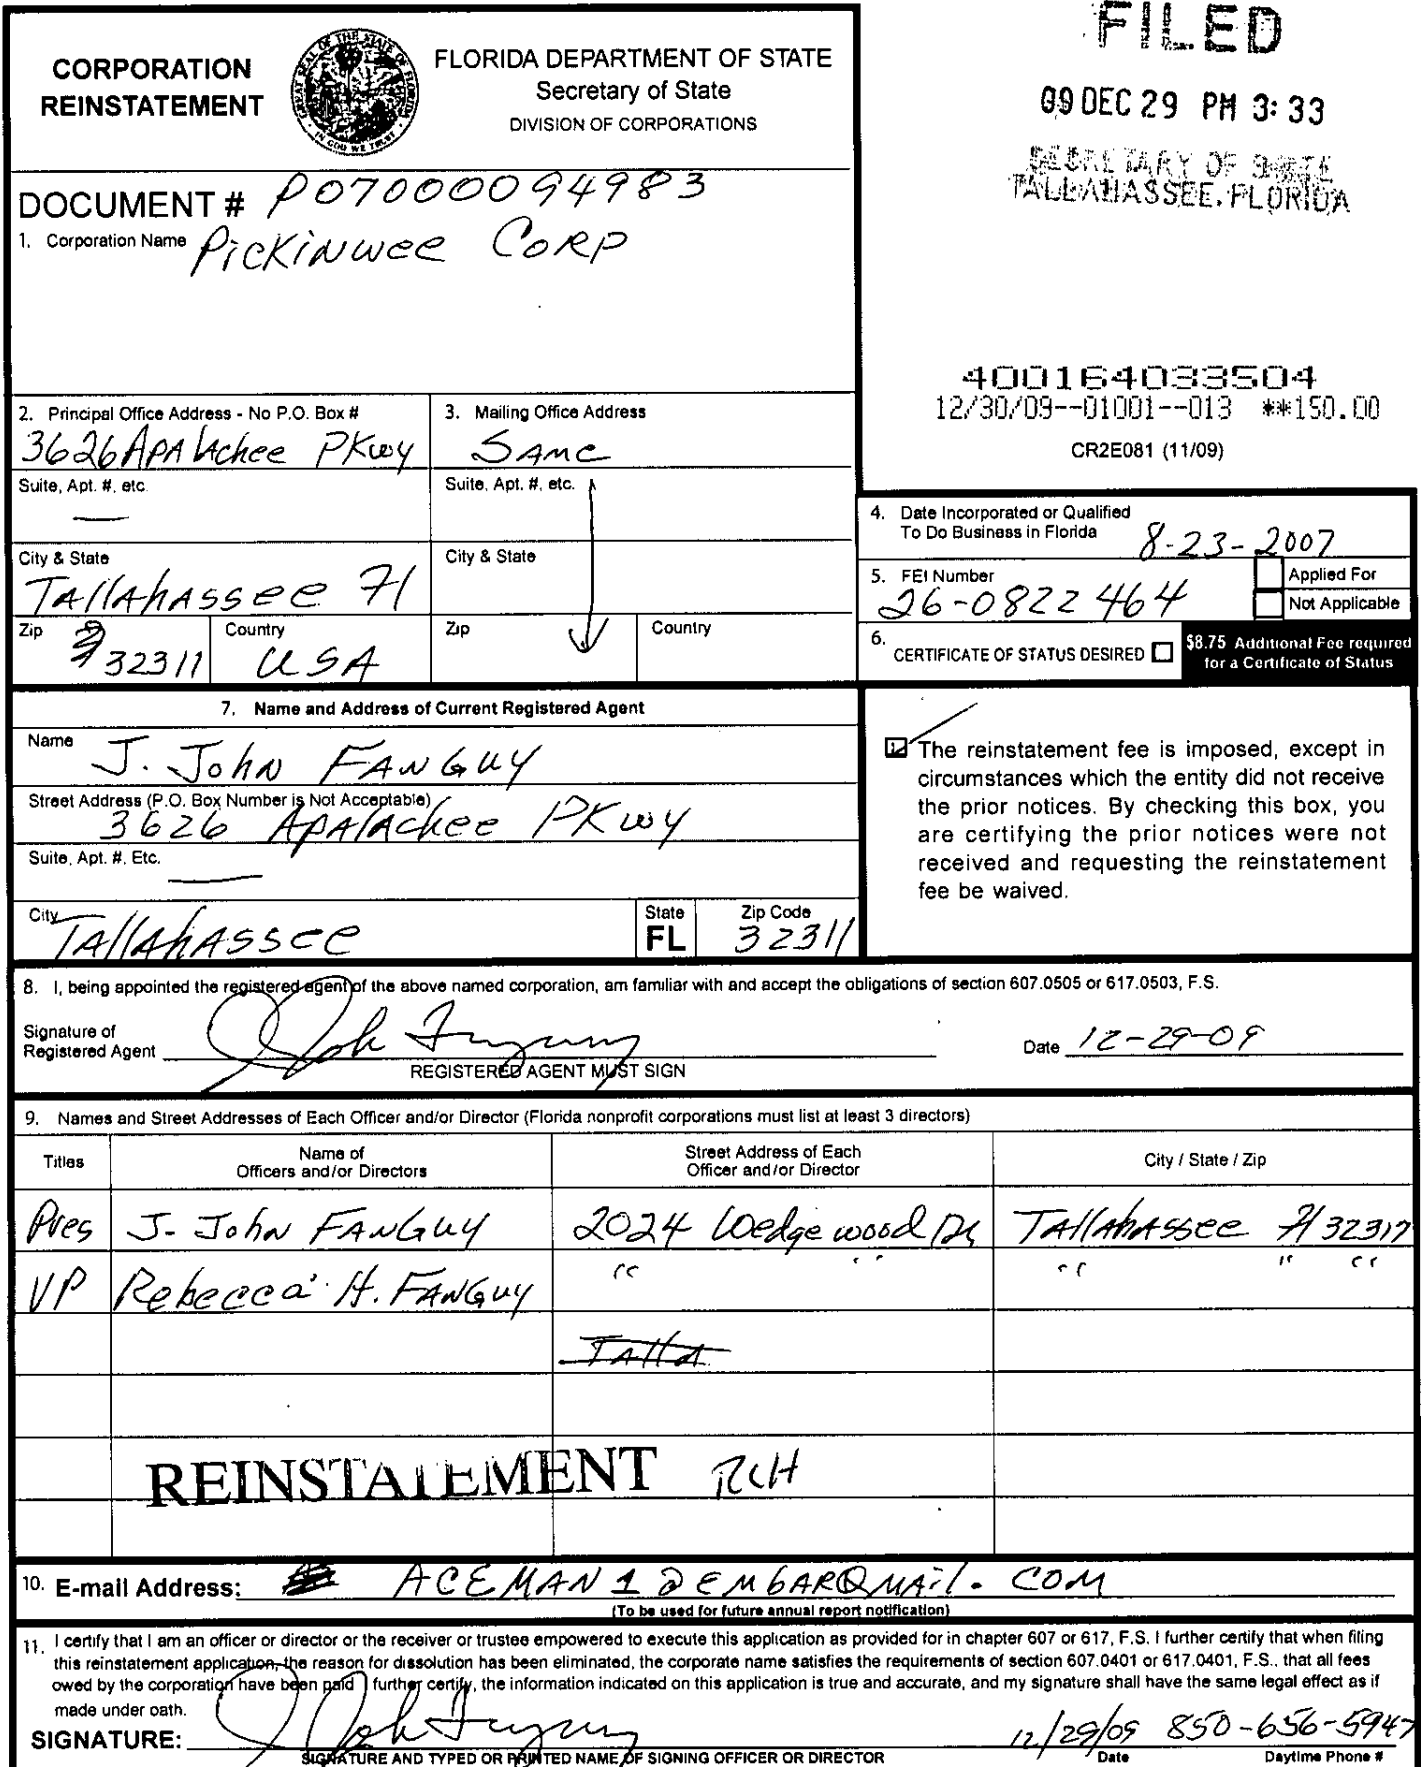 CORPORATION
REINSTATEMENT
GREAT SEAL OF THE STATE OF FLORIDA
IN GOD WE TRUST
FLORIDA DEPARTMENT OF STATE
Secretary of State
DIVISION OF CORPORATIONS
FILED
09 DEC 29 PM 3:33
SECRETARY OF STATE
TALLAHASSEE, FLORIDA
DOCUMENT # P07000094983
1. Corporation Name PicKinwee CORP
400164033504
12/30/09--01001--013 **150.00
CR2E081 (11/09)
2. Principal Office Address - No P.O. Box #
3626 APAlAchee PKwy
Suite, Apt. #, etc.
—
City & State
TAllAhASSee Fl
Zip 32311
Country USA
3. Mailing Office Address
SAme
Suite, Apt. #, etc.
City & State
Zip
Country
4. Date Incorporated or Qualified
To Do Business in Florida 8-23-2007
5. FEI Number
26-0822464
Applied For
Not Applicable
6. CERTIFICATE OF STATUS DESIRED
$8.75 Additional Fee required
for a Certificate of Status
7. Name and Address of Current Registered Agent
Name J. John FANGUY
Street Address (P.O. Box Number is Not Acceptable)
3626 APAlAchee PKwy
Suite, Apt. #, Etc.
—
City TAllAhASSee
State
FL
Zip Code
32311
The reinstatement fee is imposed, except in
circumstances which the entity did not receive
the prior notices. By checking this box, you
are certifying the prior notices were not
received and requesting the reinstatement
fee be waived.
8. I, being appointed the registered agent of the above named corporation, am familiar with and accept the obligations of section 607.0505 or 617.0503, F.S.
Signature of
Registered Agent
Date 12-29-09
REGISTERED AGENT MUST SIGN
9. Names and Street Addresses of Each Officer and/or Director (Florida nonprofit corporations must list at least 3 directors)
Titles
Name of
Officers and/or Directors
Street Address of Each
Officer and/or Director
City / State / Zip
Pres J. John FANGUY 2024 Wedgewood Dr TAllAhASSee Fl 32317
VP Rebecca H. FANGUY " " " " "
TAllA
REINSTATEMENT RCH
10. E-mail Address: ACEMAN1@EMBARQMAil.COM
(To be used for future annual report notification)
11. I certify that I am an officer or director or the receiver or trustee empowered to execute this application as provided for in chapter 607 or 617, F.S. I further certify that when filing
this reinstatement application, the reason for dissolution has been eliminated, the corporate name satisfies the requirements of section 607.0401 or 617.0401, F.S., that all fees
owed by the corporation have been paid. I further certify, the information indicated on this application is true and accurate, and my signature shall have the same legal effect as if
made under oath.
SIGNATURE: 12/29/09 850-656-5947
SIGNATURE AND TYPED OR PRINTED NAME OF SIGNING OFFICER OR DIRECTOR
Date
Daytime Phone #